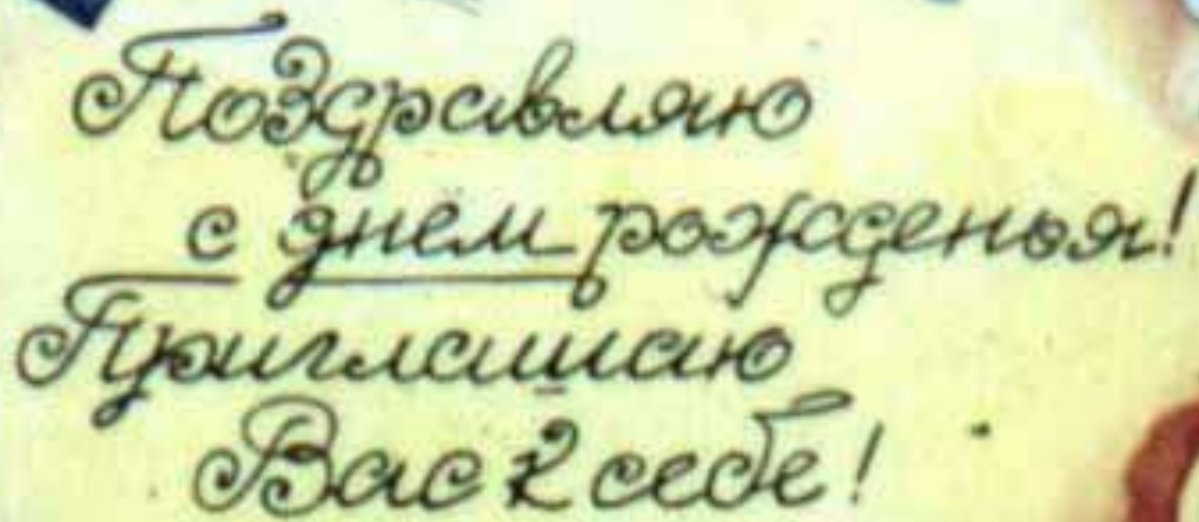 Поздравляю
с днём рожденья!
Приглашаю
Вас к себе!